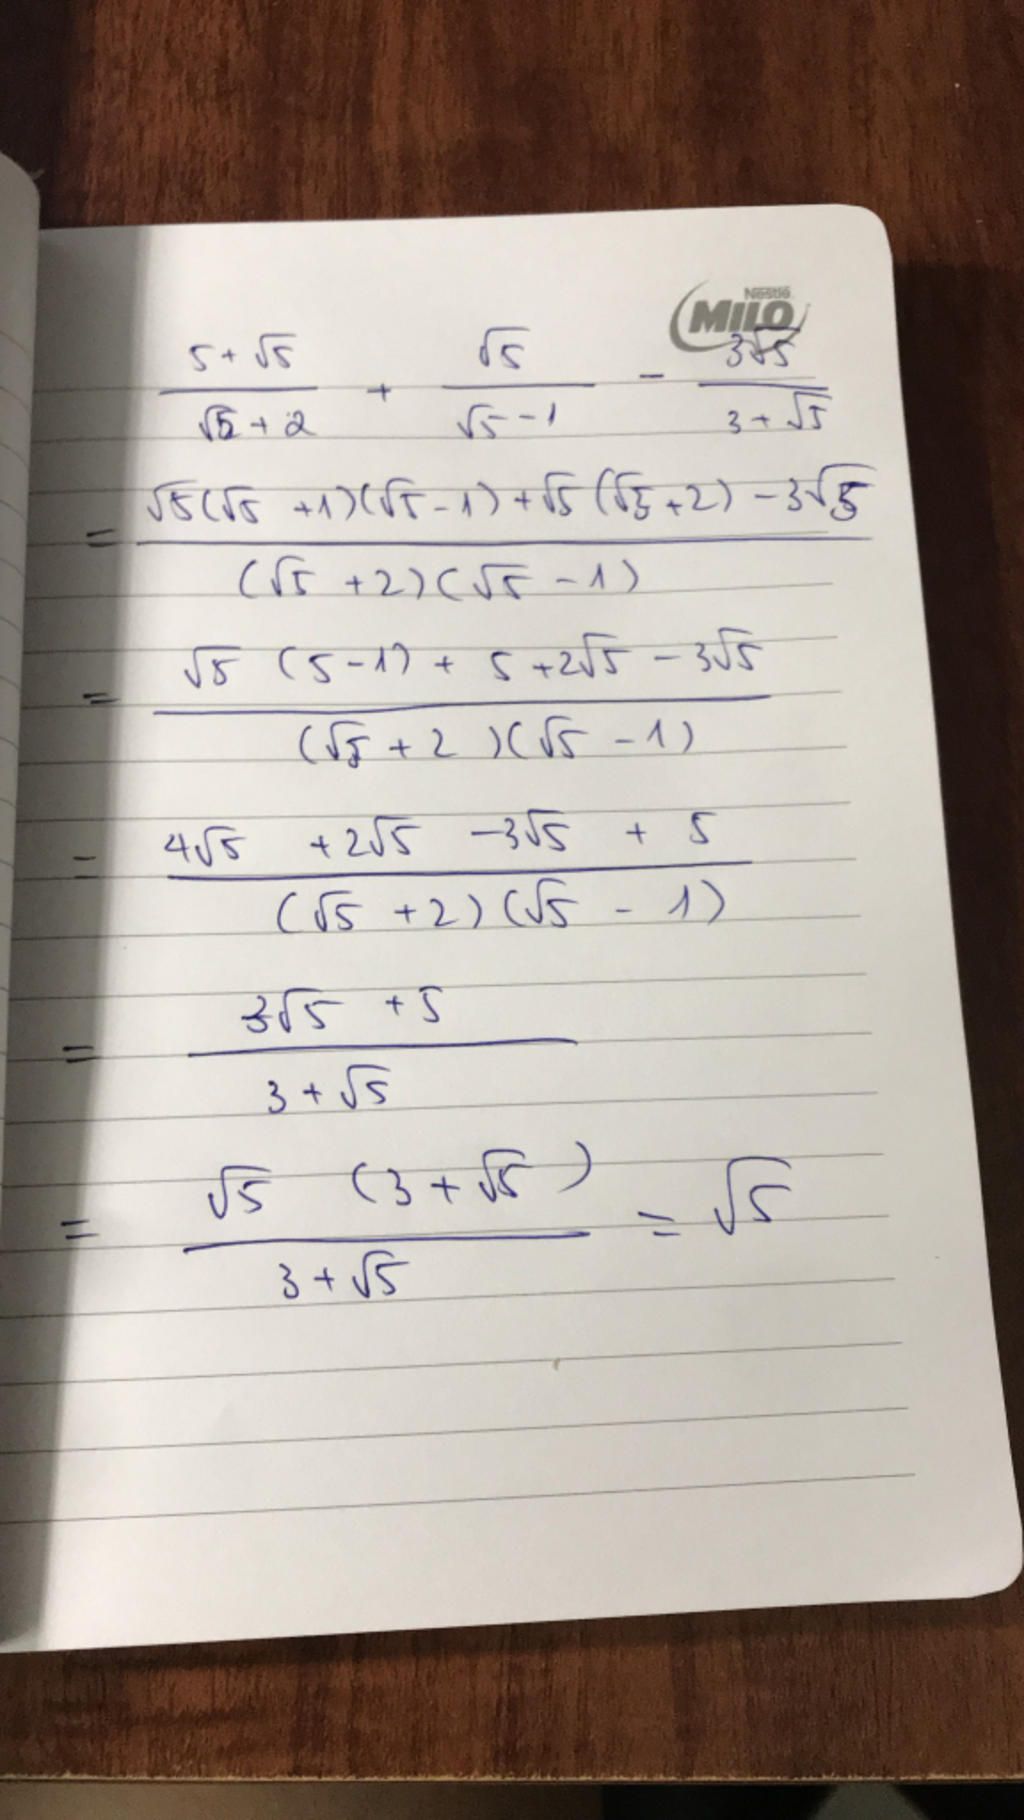 Nestlé
MILO
5 + √5 / √5 + 2 + √5 / √5 - 1 - 3√5 / 3 + √5
= √5(√5 + 1)(√5 - 1) + √5(√5 + 2) - 3√5 / (√5 + 2)(√5 - 1)
= √5 (5 - 1) + 5 + 2√5 - 3√5 / (√5 + 2)(√5 - 1)
= 4√5 + 2√5 - 3√5 + 5 / (√5 + 2)(√5 - 1)
= 3√5 + 5 / 3 + √5
= √5 (3 + √5) / 3 + √5 = √5